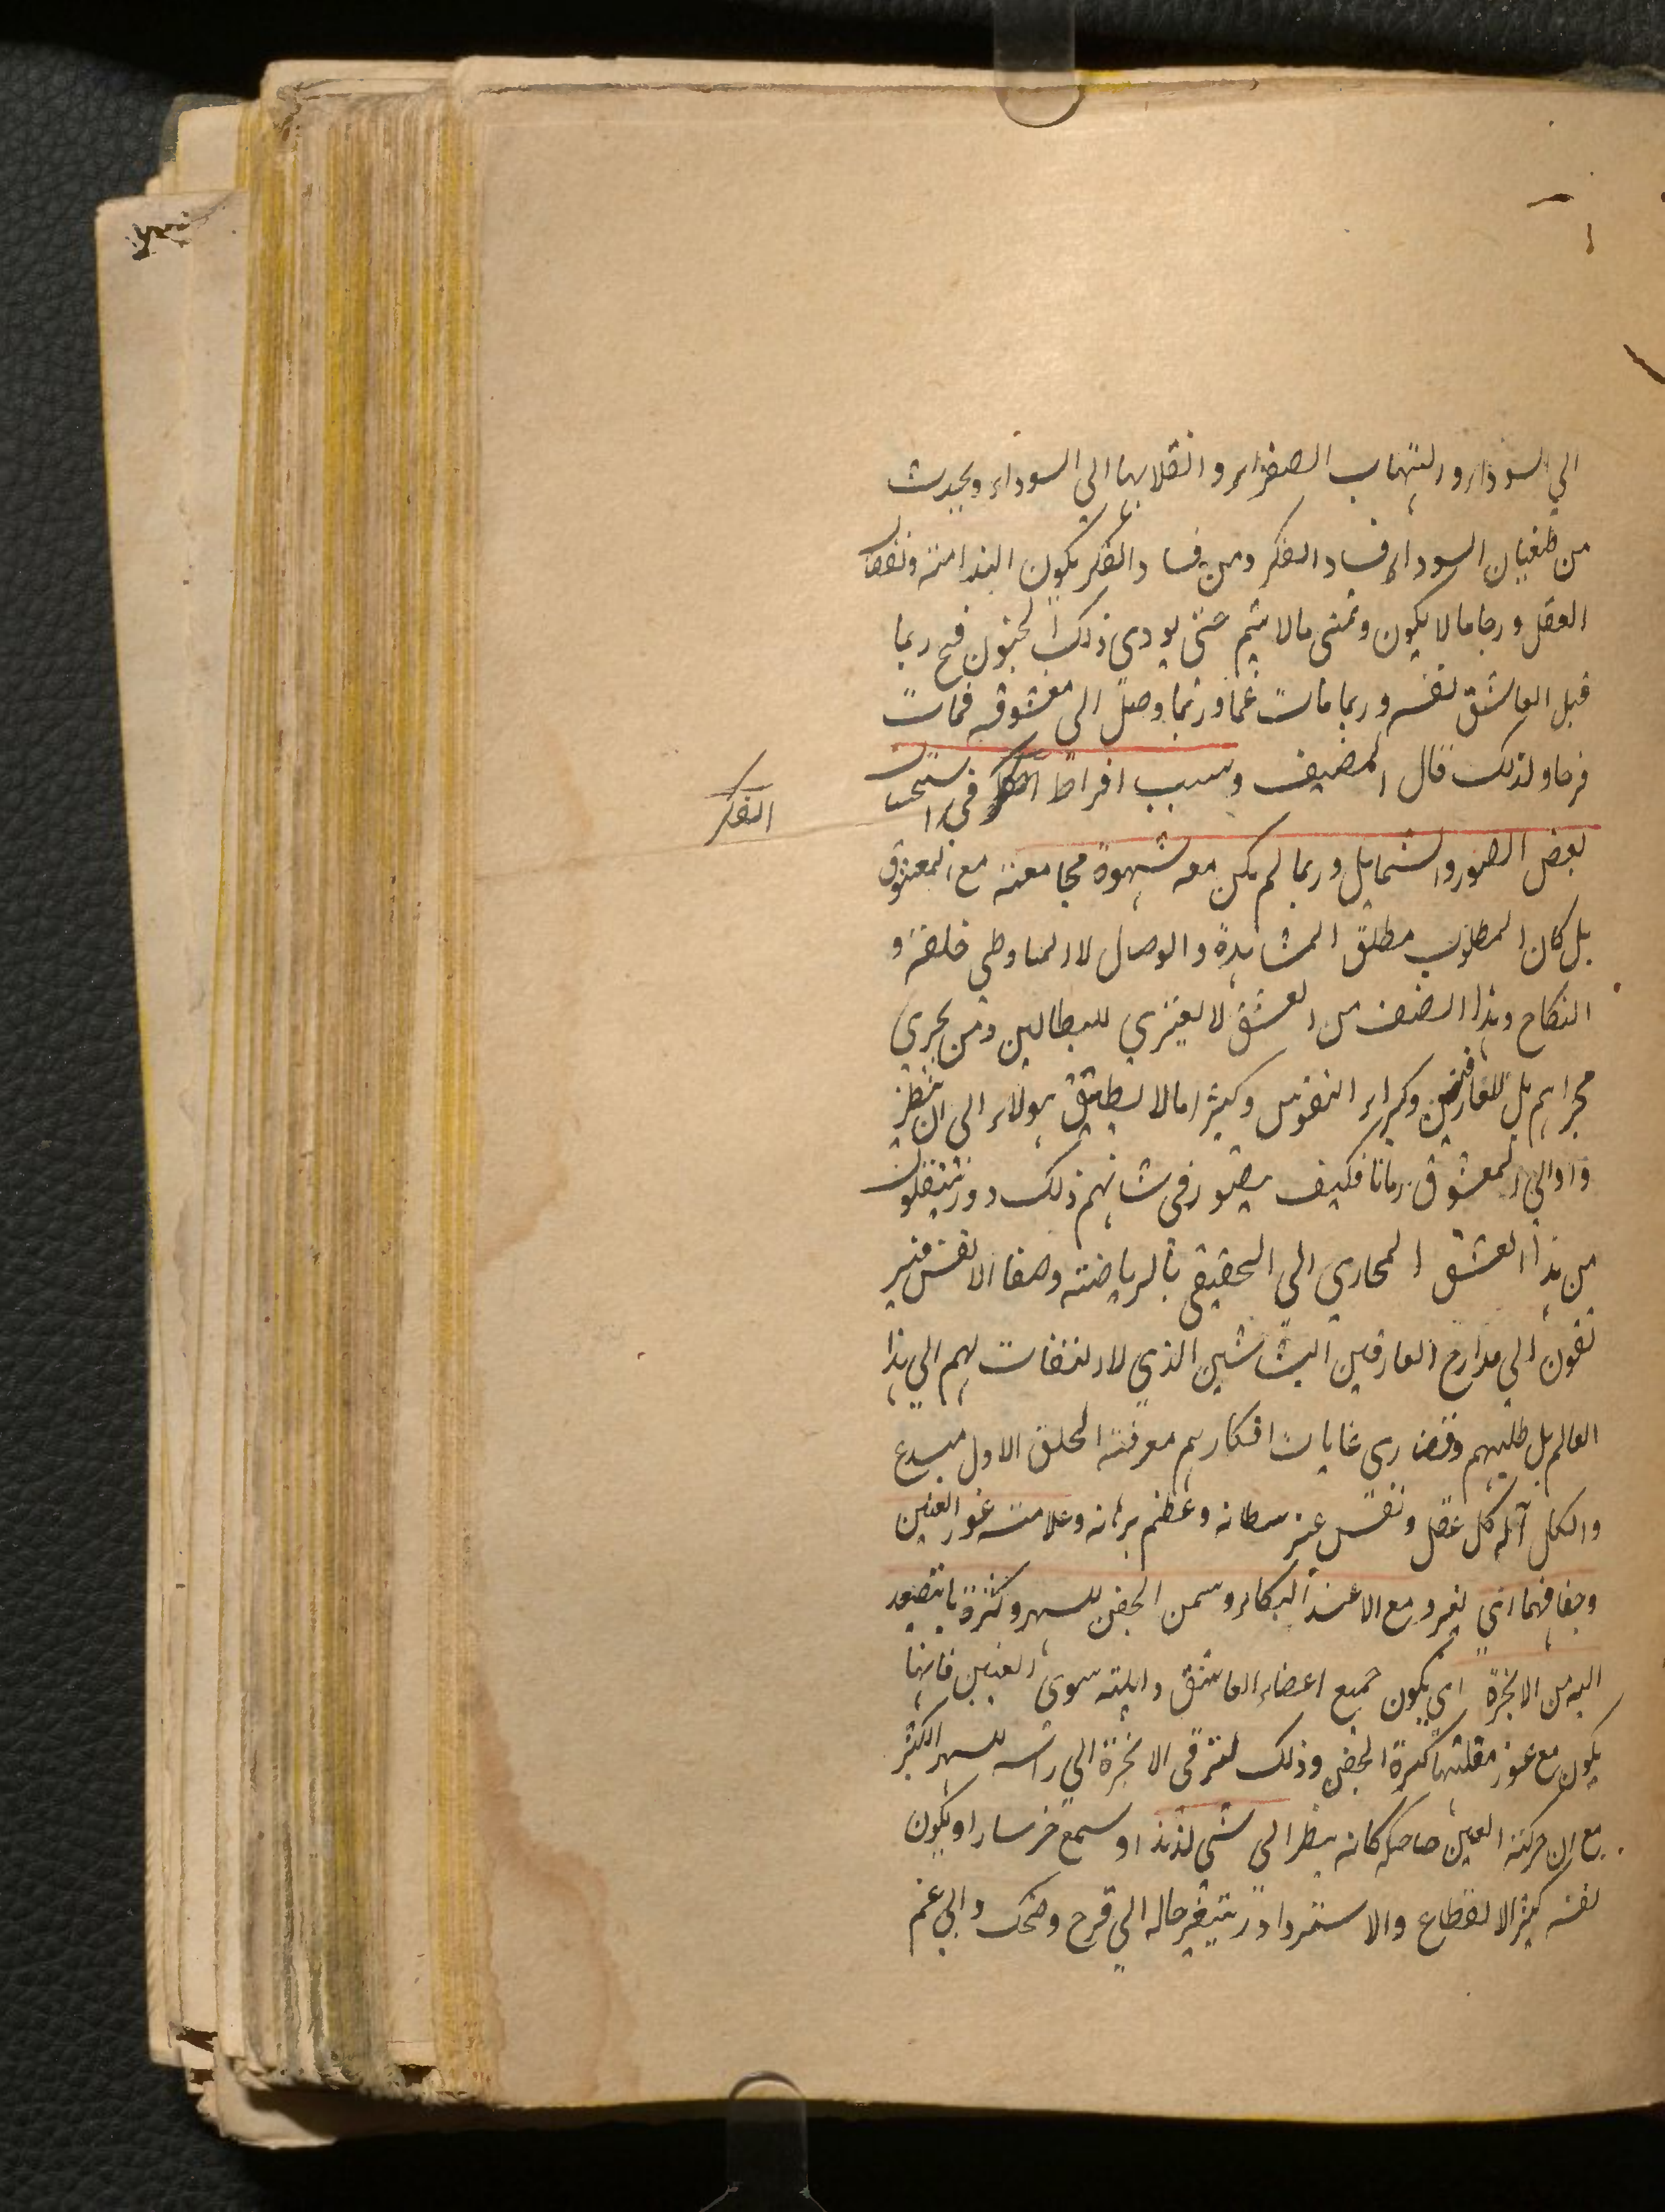 الي السوداء والتهاب الصفراء وانقلابها الي السوداء ويحدث
من طغيان السوداء فساد الفكر ومن فساد الفكر يكون الندامة ونقصان
العقل ورجا مالا يكون وتمني مالا يتم حتى يودي ذلك الجنون فح ربما
قتل العاشق نفسه وربما مات غما وربما وصل الى معشوقه فمات
فرحا ولذلك قال المصنف وسبب افراط الفكر في استحسان
الفكر
بعض الصور والشمايل وربما لم يكن معه شهوة مجامعة مع المعشوق
بل كان المطلوب مطلق المشاهدة والوصال لا
النكاح وهذا الصنف من العشق لا يعتري للبطالين ومن يجري
مجراهم بل للعارفين وكبراء النفوس وكثيرا ما لا يطيق هولاء الى ان ينظر
وا الي المعشوق زمانا فكيف يتصور في شانهم ذلك و ينتقلون
من هذا العشق المجازي الي الحقيقي بالرياضة وصفا الانفس فير
تقون الي مدارج العارفين الذي لا التفات لهم الي هذا
العالم بل طلبهم وقصاري غايات افكارهم معرفة الاول مبدع
والكل آله كل عقل ونفس عز سطانه وعظم برهانه وعلامته غور العين
وجفافهما اي لغير دمع الا عند البكاء وسمن الجفن للسهر وكثرة ما يتصعد
اليه من الابخرة اي يكون جميع اعضاء العاشق ذابلة سوى العينين فانها
يكون مع غور مقلتها كبيرة الجفن وذلك لترقى الابخرة الي راسه للسهر الكثير
مع ان حركة العين ضاحكه كانه ينظر الي شي لذيذ او سمع خبر سارا ويكون
نفسه كثير الانقطاع والاسترداد ويتغير حاله الي فرح وضحك والي غم